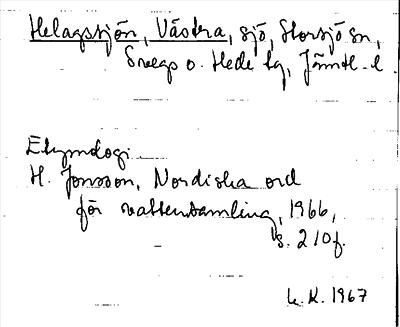 Helagssjön, Västra, sjö, Storsjö sn,
Svegs o. Hede tg, Jämtl. l.
Etymologi
H. Jonsson, Nordiska ord
för vattensamling, 1966,
s. 210f.
L. K. 1967